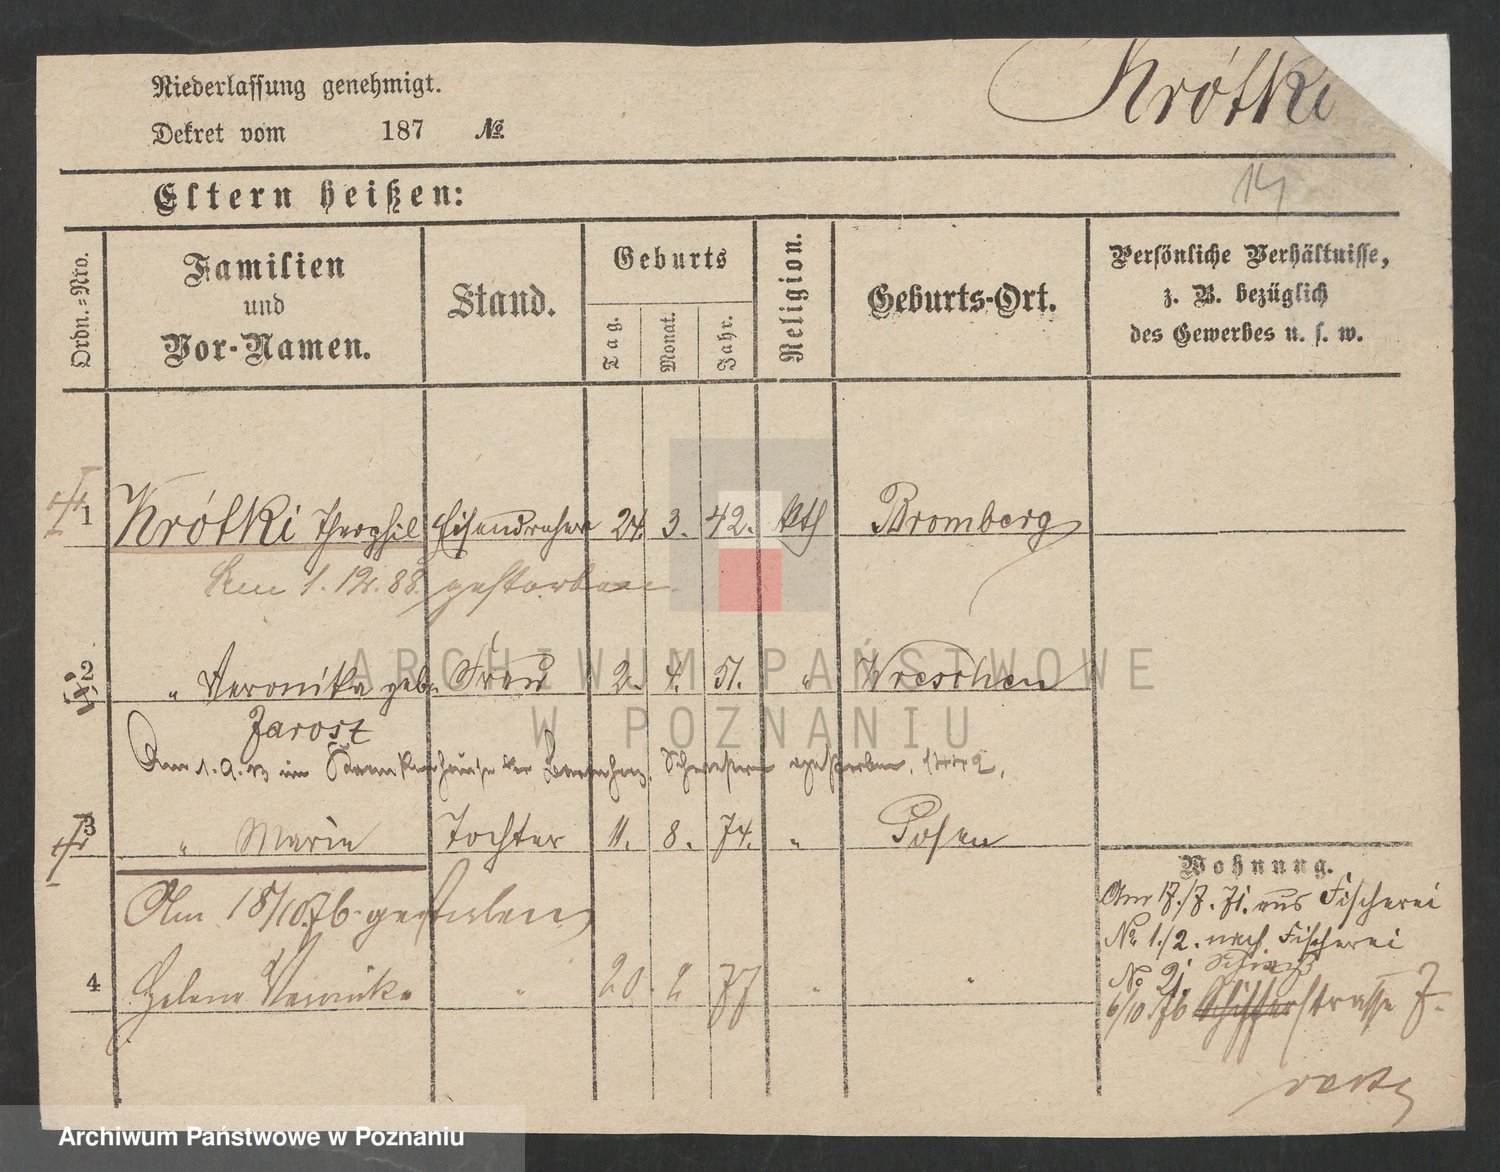 Niederlassung genehmigt.
Dekret vom 187 №
Krótki
14
Eltern heißen:
Ordn.=Nro.
Familien und Vor-Namen.
Stand.
Geburts
Tag.
Monat.
Jahr.
Religion.
Geburts-Ort.
Persönliche Verhältnisse,
z. B. bezüglich
des Gewerbes u. s. w.
1 Krótki Theophil Eisendreher 24. 3. 42. kth Bromberg
Am 1. 12. 88. gestorben.
2 " Veronika geb. Frau 2. 4. 51. " Wreschen
Jarosz
Am 1. 9. im Krankenhause der Barmherz. Schwestern gestorben.
3 " Marie Tochter 11. 8. 74. " Posen
Am 18/10.76. gestorben
4 Helene Veronika " 20. 2 77 " "
Wohnung.
Am 17./7. 71. aus Fischerei
No 1./2. nach Fischerei
No 2.
6/10 76 Schifferstrasse 7.
ARCHIWUM PAŃSTWOWE
W POZNANIU
Archiwum Państwowe w Poznaniu